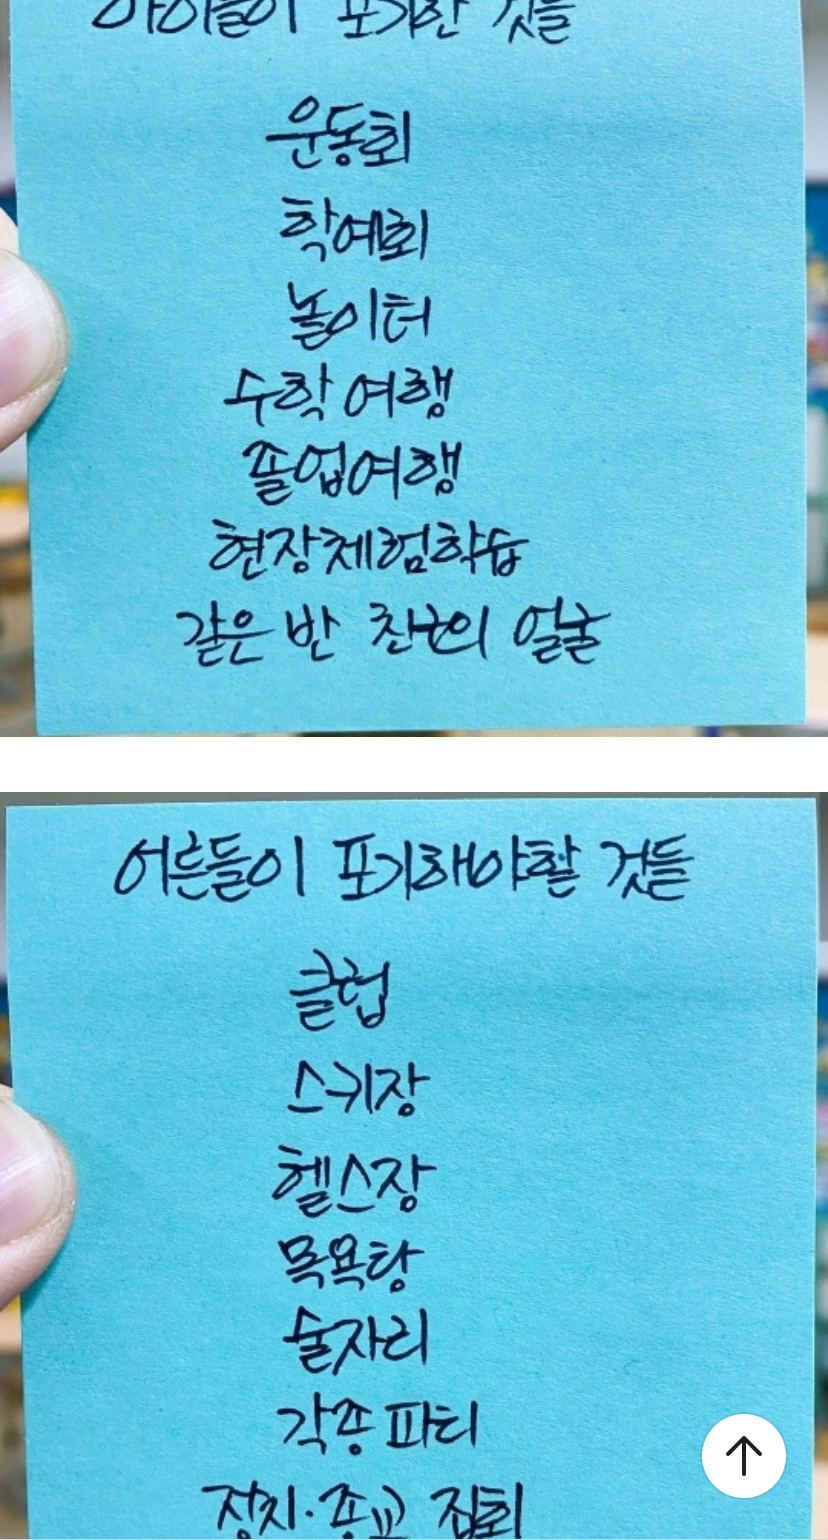 아이들이 포기한 것들
운동회
학예회
놀이터
수학여행
졸업여행
현장체험학습
같은 반 친구의 얼굴
어른들이 포기해야할 것들
클럽
스키장
헬스장
목욕탕
술자리
각종 파티
정치·종교 집회